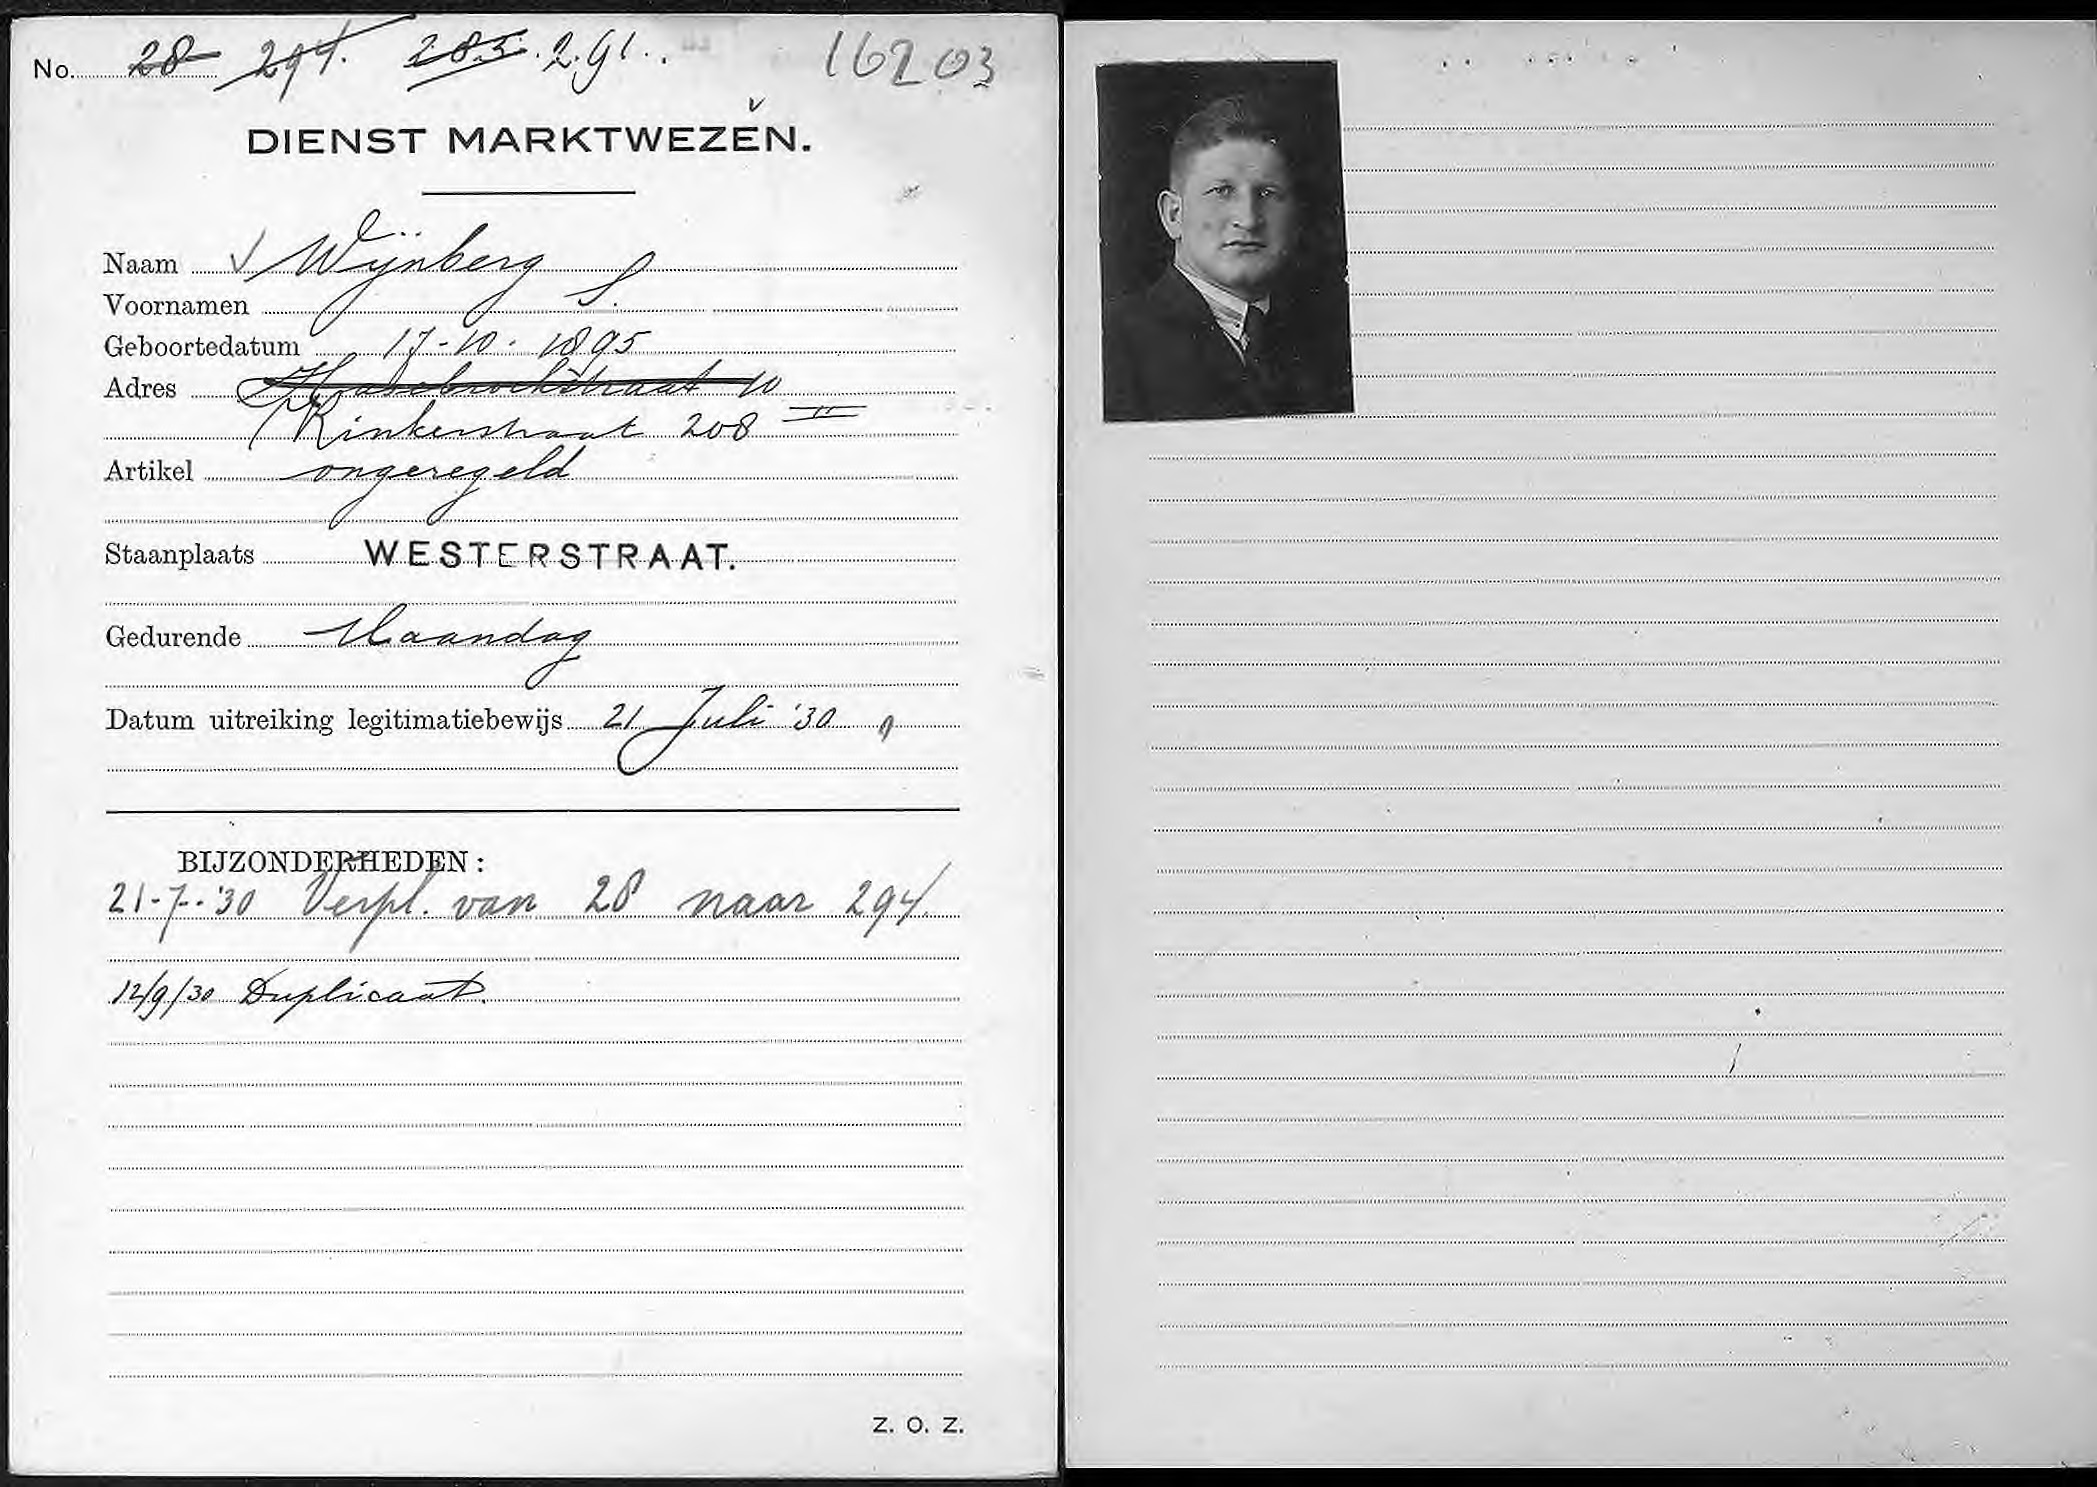 No. 28 294. 285. 291.. 16203
DIENST MARKTWEZEN.
Naam Wijnberg
Voornamen S.
Geboortedatum 17-10-1895
Adres Hasebroekstraat 10
Kinkerstraat 208 II
Artikel ongeregeld
Staanplaats WESTERSTRAAT.
Gedurende Maandag
Datum uitreiking legitimatiebewijs 21 Juli '30
BIJZONDERHEDEN:
21-7-'30 Verpl. van 28 naar 294.
12/9/30 Duplicaat.
Z. O. Z.